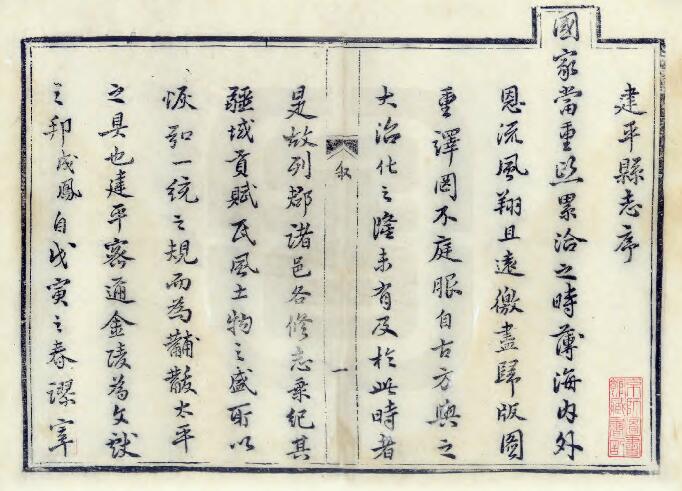 建平縣志序
國家當重熙累洽之時薄海內外
恩流風翔且遠徼盡歸版圖
重譯罔不庭服自古方輿之
大治化之隆未有及於此時者
叙
一
是故列郡諸邑各修志乘紀其
疆域貢賦民風土物之盛所以
恢弘一統之規而為黼黻太平
之具也建平密邇金陵為文獻
之邦成鳳自戊寅之春謬宰